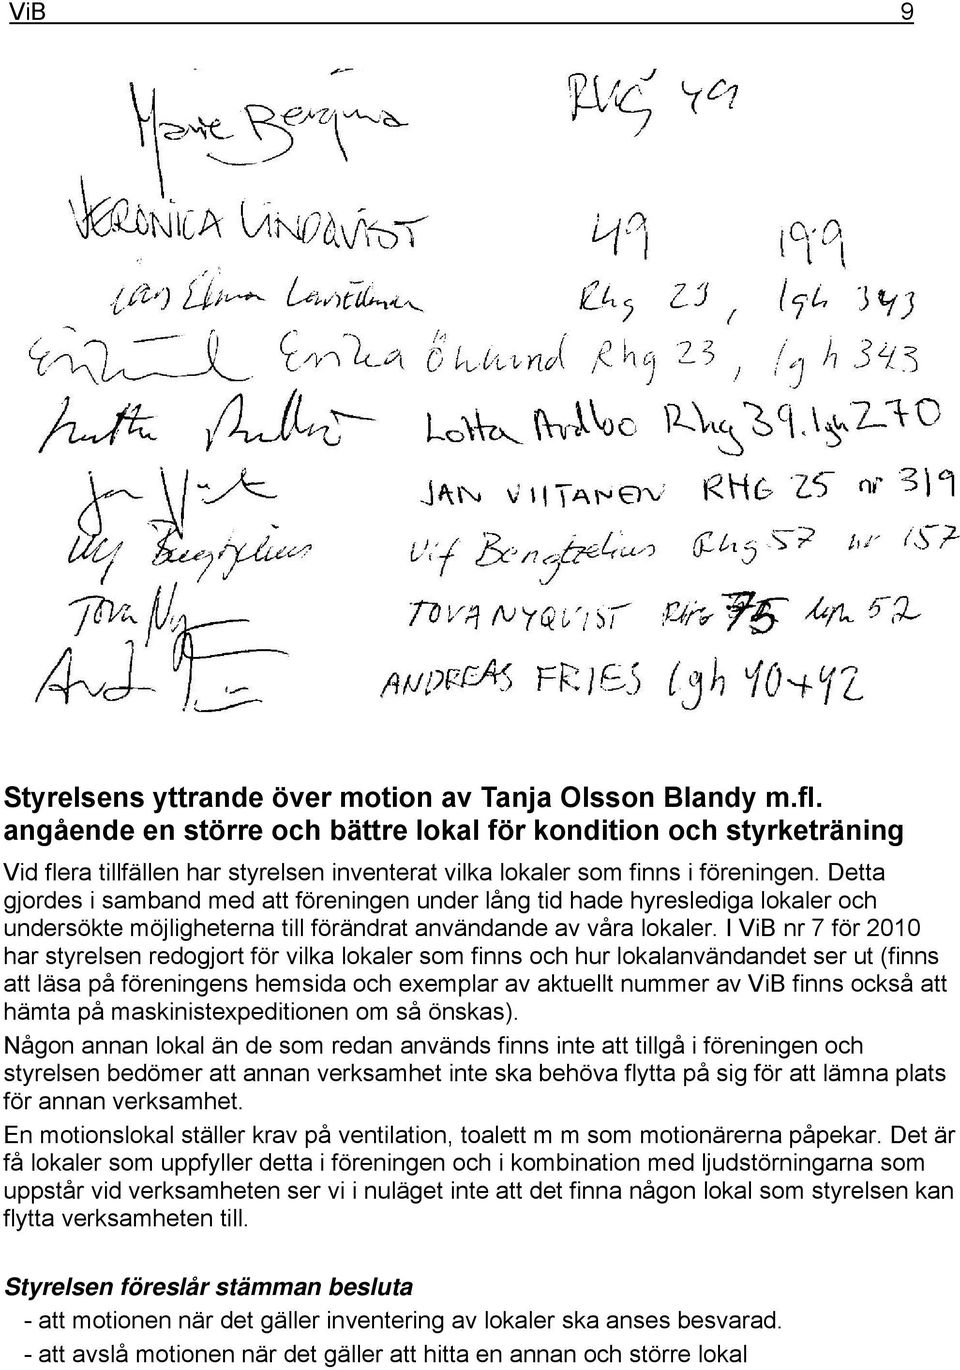 ViB 9
Marie Bergman RHG 49
VERONICA LINDQVIST 49 199
Rhg 23, lgh 343
Erika Öhlund Rhg 23, lgh 343
Lotta Ardbo Rhg 39. lgh 270
JAN VIITANEN RHG 25 nr 319
Ulf Bengtzelius Ulf Bengtzelius Rhg 57 nr 157
Tova Ny TOVA NYQVIST RHG 75 lgh 52
ANDREAS FRIES lgh 40+42
Styrelsens yttrande över motion av Tanja Olsson Blandy m.fl.
angående en större och bättre lokal för kondition och styrketräning
Vid flera tillfällen har styrelsen inventerat vilka lokaler som finns i föreningen. Detta
gjordes i samband med att föreningen under lång tid hade hyreslediga lokaler och
undersökte möjligheterna till förändrat användande av våra lokaler. I ViB nr 7 för 2010
har styrelsen redogjort för vilka lokaler som finns och hur lokalanvändandet ser ut (finns
att läsa på föreningens hemsida och exemplar av aktuellt nummer av ViB finns också att
hämta på maskinistexpeditionen om så önskas).
Någon annan lokal än de som redan används finns inte att tillgå i föreningen och
styrelsen bedömer att annan verksamhet inte ska behöva flytta på sig för att lämna plats
för annan verksamhet.
En motionslokal ställer krav på ventilation, toalett m m som motionärerna påpekar. Det är
få lokaler som uppfyller detta i föreningen och i kombination med ljudstörningarna som
uppstår vid verksamheten ser vi i nuläget inte att det finna någon lokal som styrelsen kan
flytta verksamheten till.
Styrelsen föreslår stämman besluta
- att motionen när det gäller inventering av lokaler ska anses besvarad.
- att avslå motionen när det gäller att hitta en annan och större lokal